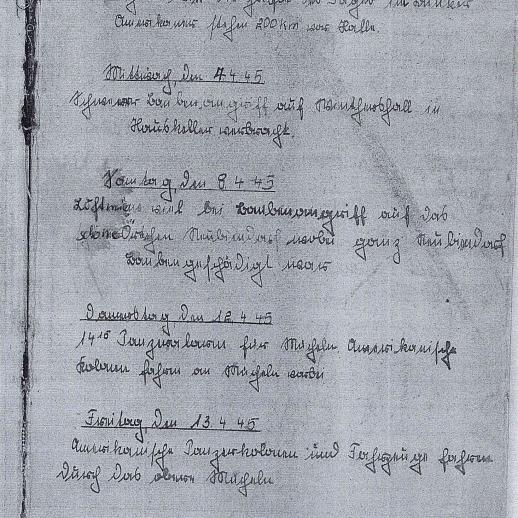 Amerikaner stehen 200 km vor Halle.
Mittwoch, den 4.4.45
Schwerer Bombenangriff auf Wintershall in
Hauskeller verbracht.
Sonntag, den 8.4.45
Luftmine viel bei Bombenangriff auf das
Neubiendorf wobei ganz Neubiendorf
Bombengeschädigt war
Donnerstag den 12.4.45
14¹⁵ Panzeralarm für Mücheln. Amerikanische
Kolonen fahren an Mücheln vorbei
Freitag, den 13.4.45
Amerikanische Panzerkolonen und Fahrzeuge fahren
durch das obere Mücheln